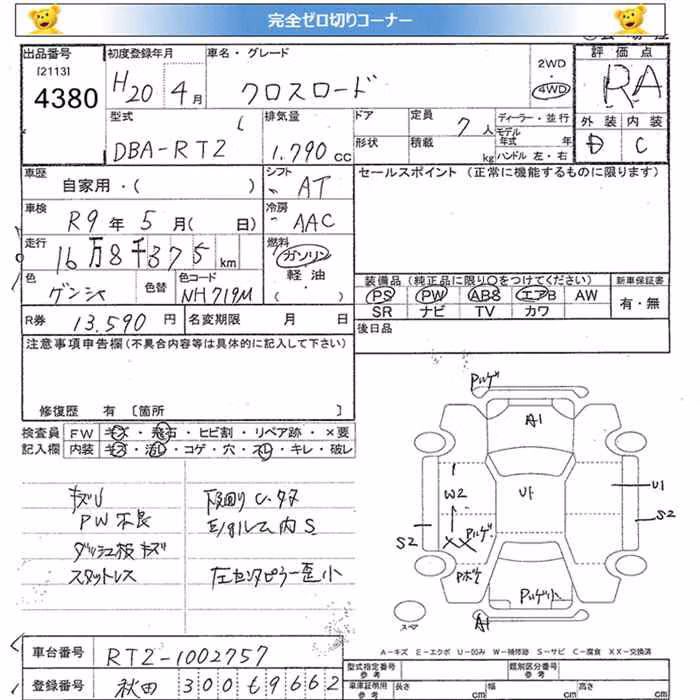 完全ゼロ切りコーナー
出品番号
[2113]
4380
初度登録年月
H20 4月
車名・グレード
クロスロード
2WD
4WD
評価点
RA
型式
DBA-RT2
排気量
1.790 cc
ドア
形状
定員
7人
積載
kg
ディーラー・並行
モデル年式 年
ハンドル 左・右
外装 内装
D C
車歴
自家用・( )
シフト
AT
セールスポイント (正常に機能するものに限ります)
車検
R9年5月( 日)
冷房
AAC
走行
16万8千375km
燃料
ガソリン
軽油
( )
色
ゲンシャ
色替
色コード
NH719M
装備品(純正品に限り○をつけてください)
PS PW ABS エアB AW
SR ナビ TV カワ
新車保証書
有・無
R券 13.590円
名変期限 月 日
後日品
注意事項申告欄(不具合内容等は具体的に記入して下さい)
修復歴 有 [箇所 ]
検査員 FW キズ・飛石・ヒビ割・リペア跡・×要
記入欄 内装 キズ・汚レ・コゲ・穴・スレ・キレ・破レ
キズU
PW不良
ダッシュ板キズ
スタットレス
下回りC.タタ
E/gルーム内S
左センタピラー歪小
Pルゲ
A1
U1
W2
S2
Uト
U1
S2
Pルゲ
XX
Pボケ
Pルゲ小
A1
スペ
A-キズ E-エクボ U-凹み W-補修跡 S-サビ C-腐食 XX-交換済
車台番号 RT2-1002757
登録番号 秋田 300 も 9662
型式指定番号
参考
類別区分番号
参考
車庫証明用
参考
長さ cm
幅 cm
高さ cm